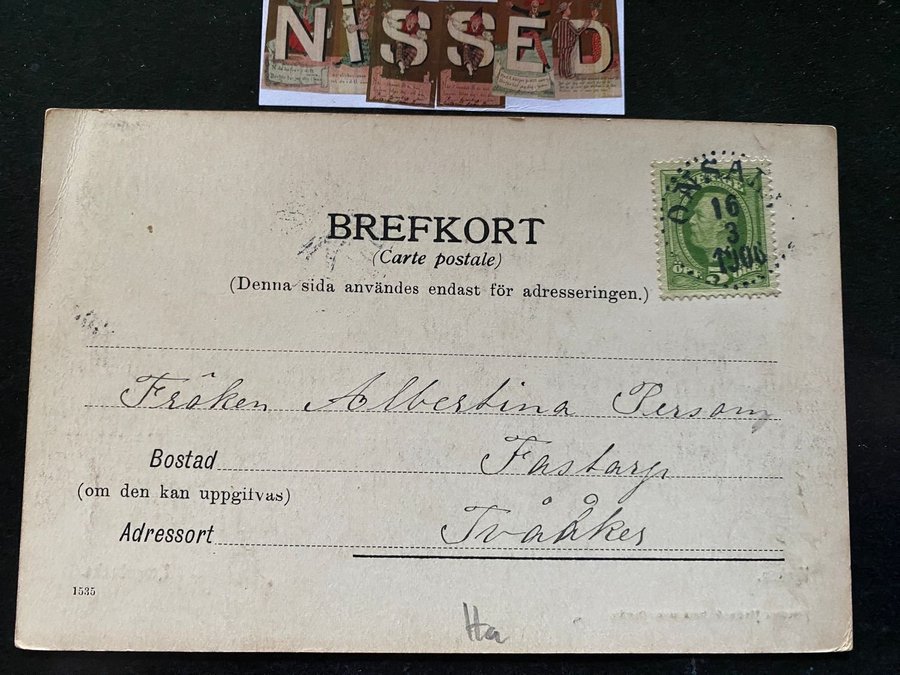 NISSED
BREFKORT
(Carte postale)
(Denna sida användes endast för adresseringen.)
ONSALA
16
3
Fröken Albertina Person
Bostad Fastarp
(om den kan uppgifvas)
Adressort Tvååker
1535
Ha